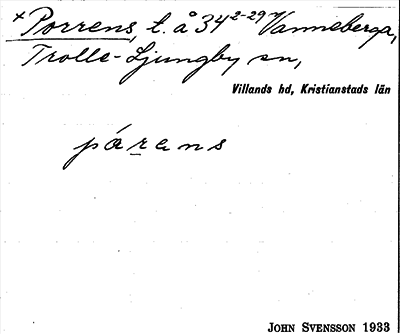 × Porrens, t. å 34 2-29 Vanneberga,
Trolle-Ljungby sn,
Villands hd, Kristianstads län
pórens
JOHN SVENSSON 1933